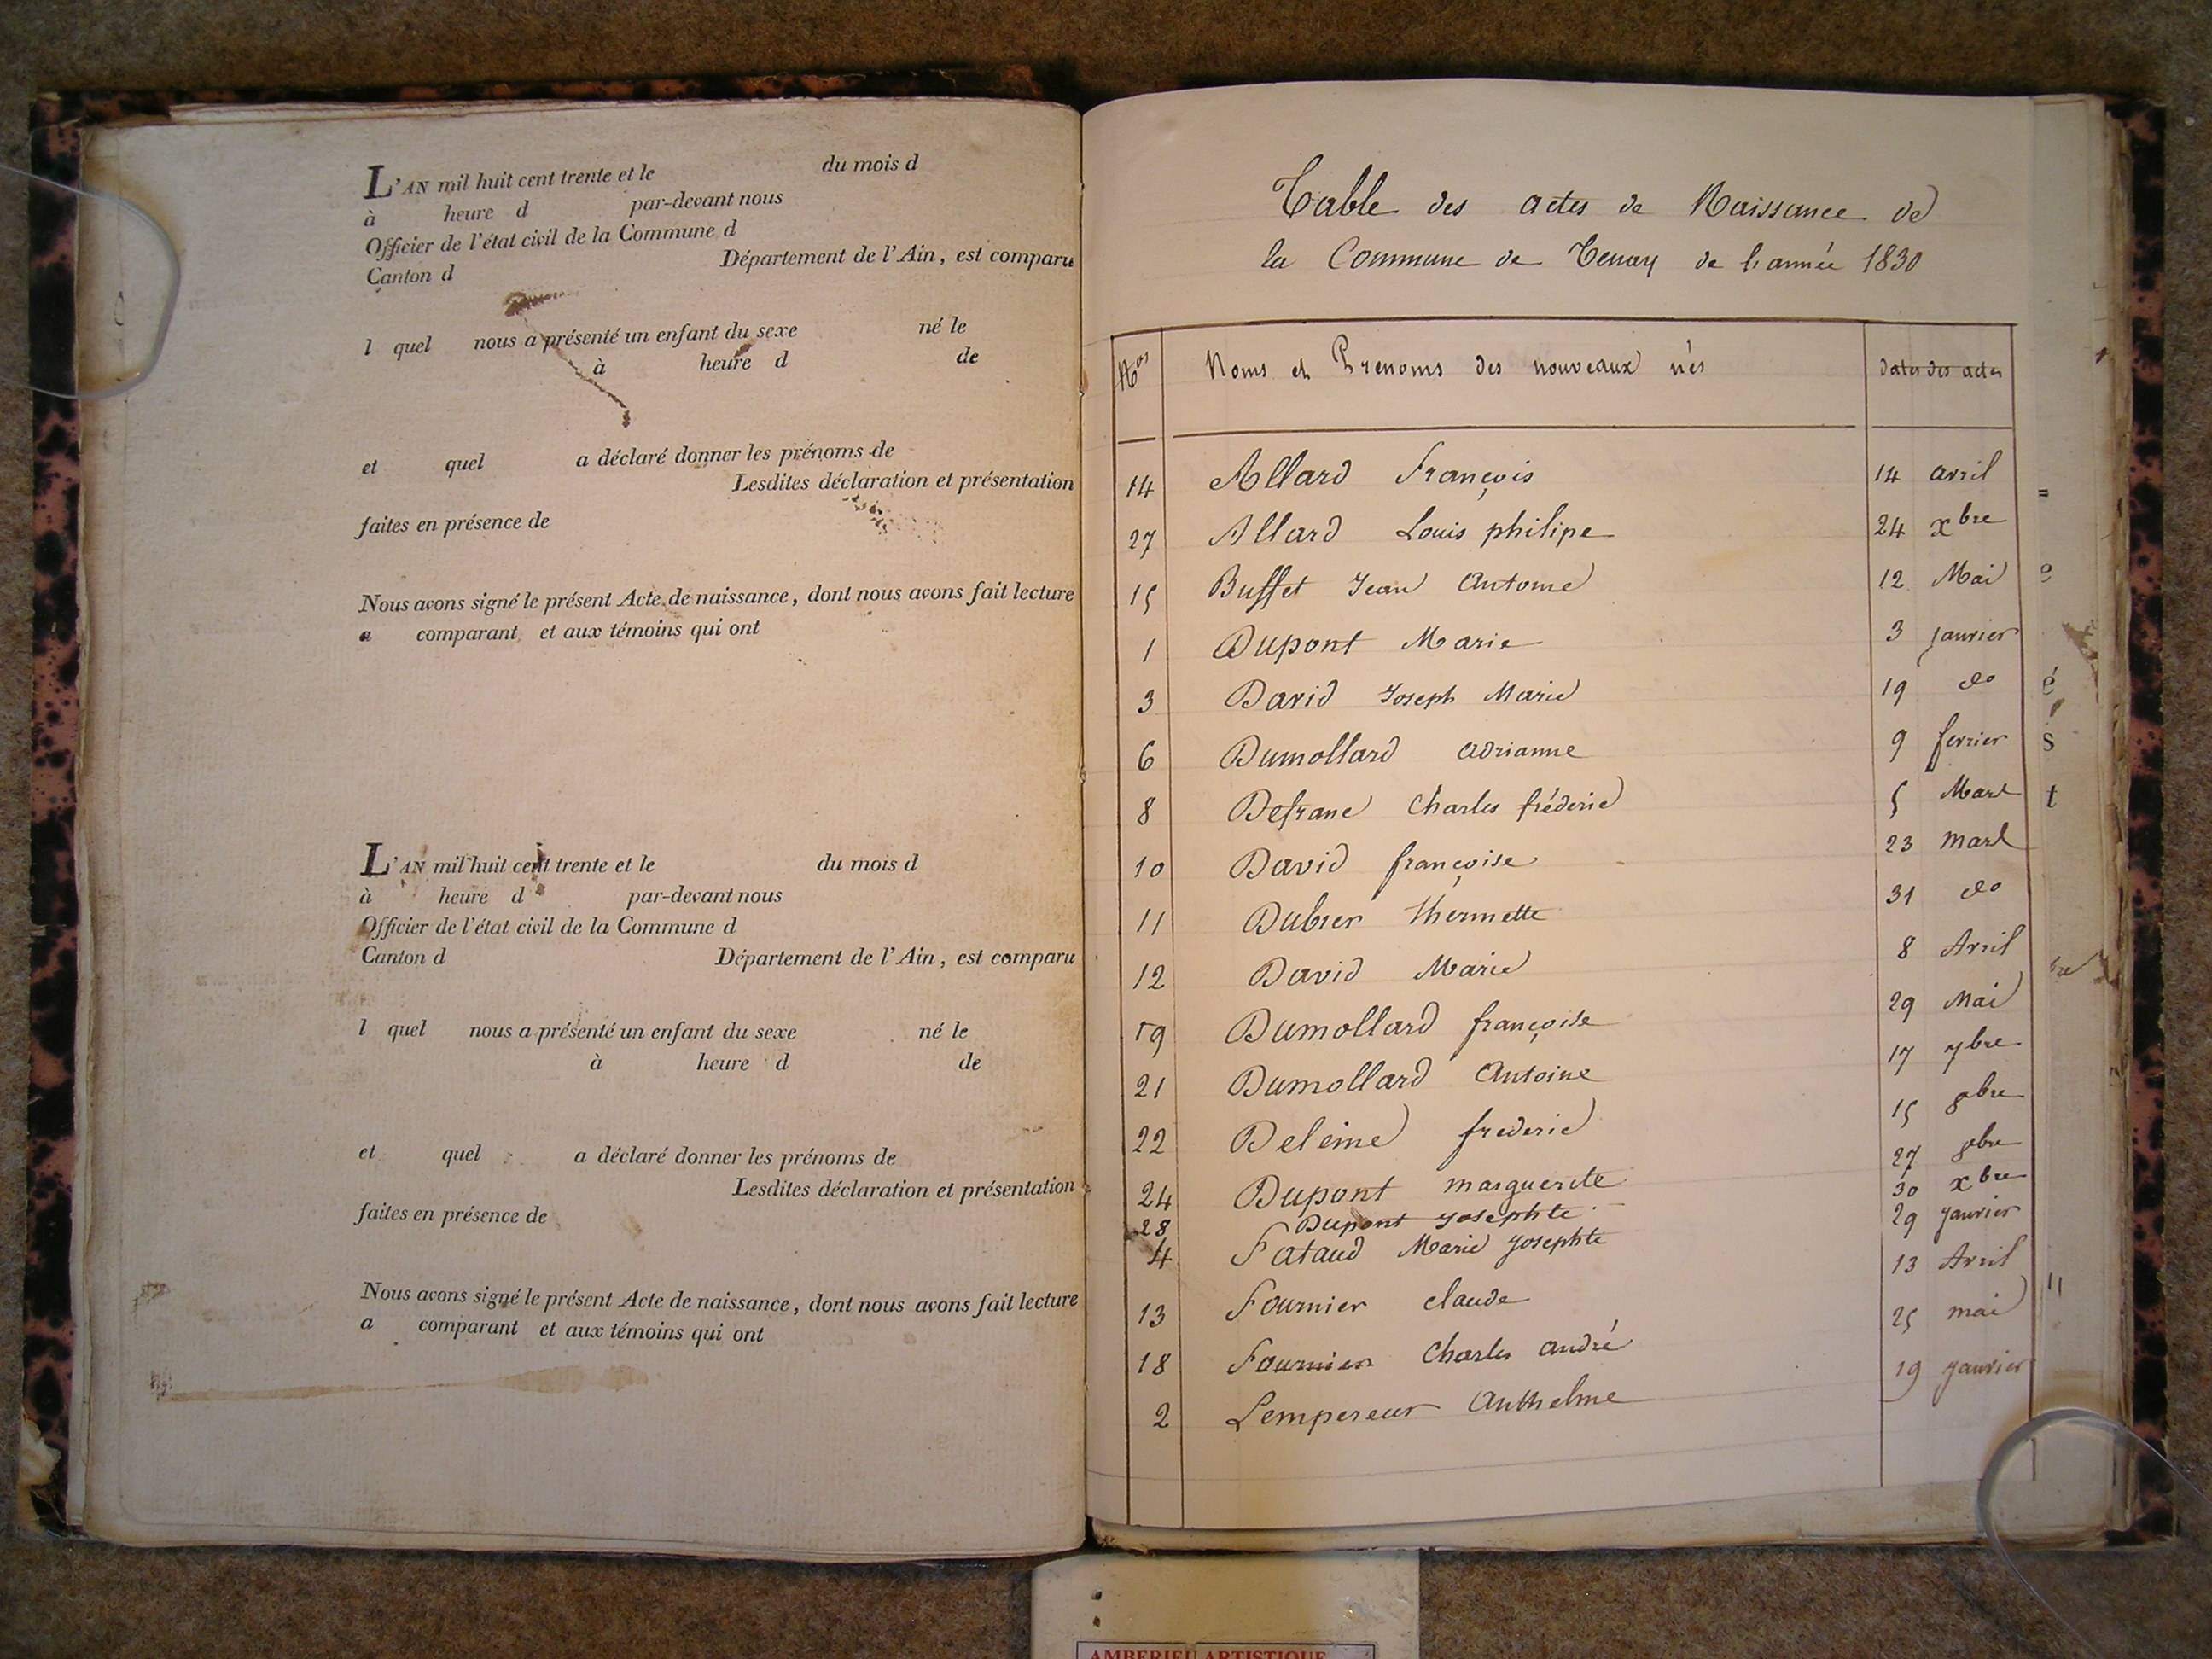 L'AN mil huit cent trente et le du mois d
à heure d par-devant nous
Officier de l'état civil de la Commune d
Canton d Département de l'Ain, est comparu
l quel nous a présenté un enfant du sexe né le
à heure d de
et quel a déclaré donner les prénoms de
Lesdites déclaration et présentation
faites en présence de
Nous avons signé le présent Acte de naissance, dont nous avons fait lecture
a comparant et aux témoins qui ont
L'AN mil huit cent trente et le du mois d
à heure d par-devant nous
Officier de l'état civil de la Commune d
Canton d Département de l'Ain, est comparu
l quel nous a présenté un enfant du sexe né le
à heure d de
et quel a déclaré donner les prénoms de
Lesdites déclaration et présentation
faites en présence de
Nous avons signé le présent Acte de naissance, dont nous avons fait lecture
a comparant et aux témoins qui ont
Table des actes de Naissance de
la Commune de Tenay de l'année 1830
Nos Noms et Prenoms des nouveaux nés dates des actes
14 Allard François 14 avril
27 Allard Louis philipe 24 xbre
15 Buffet Jean Antoine 12 Mai
1 Dupont Marie 3 janvier
3 David Joseph Marie 19 do
6 Dumollard adrianne 9 fevrier
8 Defranc Charles fréderic 5 Mars
10 David françoise 23 mars
11 31 do
12 David Marie 8 Avril
19 Dumollard françoise 29 Mai
21 Dumollard Antoine 17 7bre
22 frederic 15 8bre
24 Dupont marguerite 27 8bre
28 Dupont Josephte 30 xbre
4 Fataud Marie Josephte 29 janvier
13 Fournier claude 13 Avril
18 Fournier Charles andré 25 mai
2 Lempereur Anthelme 19 janvier
AMBERIEU ARTISTIQUE